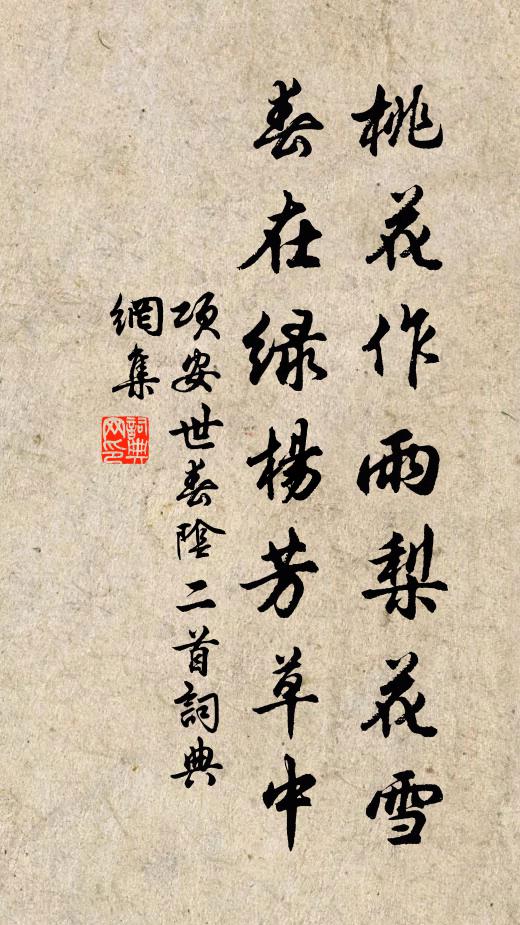 桃花作雨梨花雪
春在绿楊芳草中
项安世春陰二首詞典
網集
詞典网印